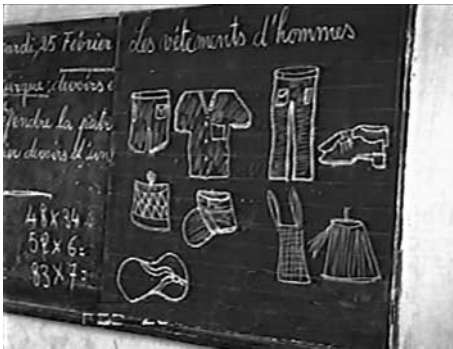 ardi, 25 Février
Les vêtements d'hommes
devoirs
la
devoirs d'un
48X34
52X6=
83X7=